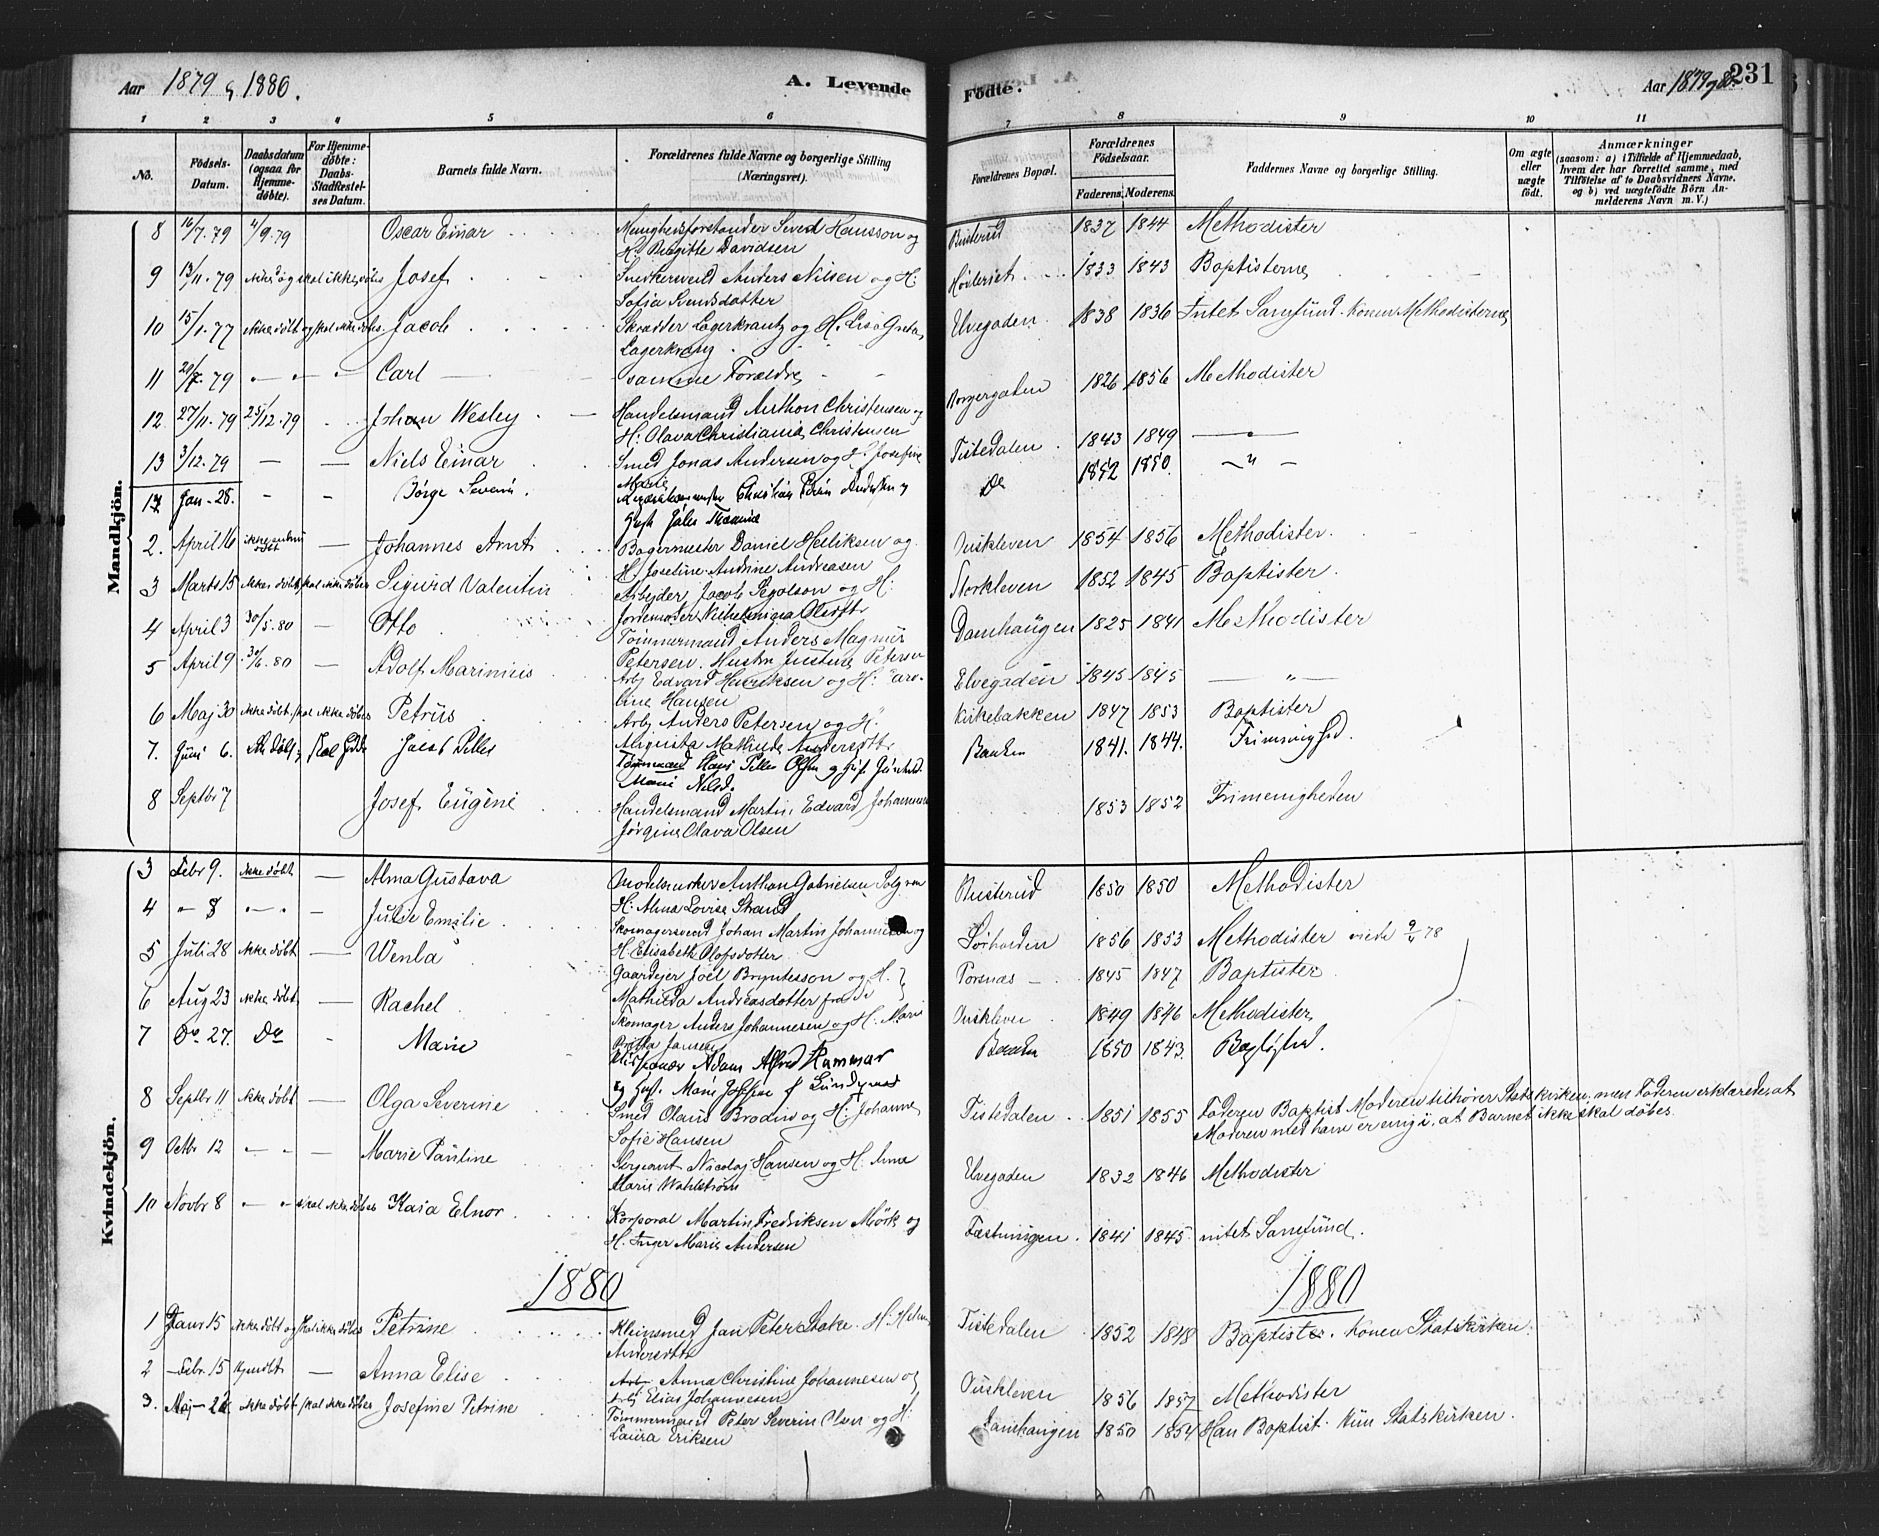 Aar 1879 & 1880.
A. Levende
Fødte.
Aar 1879 & 80.
231
1 2 3 4 5 6 7 8 9 10 11
No.
Fødsels-Datum.
Daabsdatum (ogsaa for Hjemmedøbte).
For Hjemmedøbte: Daabs-Stadfæstelses Datum.
Barnets fulde Navn.
Forældrenes fulde Navne og borgerlige Stilling (Næringsvei).
Forældrenes Bopæl.
Forældrenes Fødselsaar.
Faderens. Moderens.
Faddernes Navne og borgerlige Stilling.
Om ægte eller uægte født.
Anmærkninger
(saasom: a) i Tilfælde af Hjemmedaab, hvem der har forrettet samme, med Tilføielse af to Daabsvidners Navne, og b) ved uægtefødte Børn Anmelderens Navn m. V.)
Mandkjøn.
8 16/7.79 4/9.79 Oscar Einar Menighedsforstander Sivert Hansson og
H. Birgitte Davidsen Busterud 1837 1844 Methodister
9 13/11.79 ikke d og skal ikke døbes Josef Snedkersvend Anders Nilsen og H:
Sofia Svensdatter 1833 1843 Baptisterne
10 15/1.77 ikke døbt og skal ikke døbes Jacob Skrædder Lagerkrantz og H. Lisa Greta
Lagerkranz Elvegaden 1838 1836 Intet Samfund. Konen Methodisterne
11 79 Carl samme Forældre Borgergaden 1826 1856 Methodister
12 27/11.79 25/12.79 Johan Wesley Handelsmand Anthon Christensen og
H: Olava Christiania Christensen Tistedalen 1843 1849 — " —
13 3/12.79 — — Niels Einar Smed Jonas Andersen og H. Josefine
Marie Do 1852 1850 — " —
Jan. 28. - - Børge Severin.
2. April 16 Johannes Arnt Bagermester Daniel Helliksen og
H. Josefine Andrine Andreasen 1854 1856 Methodister.
3 Marts 15 ikke døbt, skal ikke døbes Sigurd Valentin Arbejder Jacob Segolson og H:
Jordemoder Vilhelmina Olsdtr Storkleven 1852 1845 Baptister.
4 April 3 30/5.80 — Otto Tømmermand Anders Magnus
Petersen. Hustru Justine Petersen Damhaugen 1825 1841 Methodister
5 April 9 30/6.80 — Adolf Marinius Arb Edvard Henriksen og H: Caroline Hansen Elvegaden 1845 1845 — " —
6 Maj 30 ikke døbt. skal ikke døbes Petrus Arb Anders Petersen og H.
Augusta Mathilde Andersdtr Kirkebakken 1847 1853 Baptister
7. Juni 6. Jacob Peter Tømmermand Hans Peter Olsen og
Marie Nilsd. Banken 1841. 1844. Frimenighed.
8 Septbr 7 Josef Eugène Handelsmand Martin Edvard Johannesen
Jørgine Olava Olsen 1853 1852 Frimenigheden
Kvindekjøn.
3 Febr 9. ikke døbt — Alma Gustava Anthon Gabrielsen
H: Alma Lovise Strand Busterud 1850 1850 Methodister
4 " 8 — " — Julie Emilie Skomagersvend Johan Martin Johannesen og
H. Elisabeth Olofsdotter Sørhalden 1856 1853 Methodister viede 9/4 78
5 Juli 28 ikke døbt — Wenla Gaardejer Joel Bryntesson og H.
Mathilda Andreasdotter fra Torsnæs 1845 1847 Baptister
6 Aug 23 ikke døbt — Rachel Skomager Anders Johannesen og H. Maria
Britta Jansen 1849 1846 Methodister
7 Do 27. Do - Marie Missionær Adam Alfred Hammar
og Marie Josefine Banken 1850 1843.
8 Septbr 11 ikke døbt Olga Severine Smed Olaus Brodin og H: Johanne
Sofie Hansen Tistedalen 1851 1855 Faderen Baptist Moderen tilhører Statskirken, men Faderen erklærede, at
Moderen med ham er enig i, at Barnet ikke skal døbes.
9 Octbr 12 — " — Marie Pauline Sergeant Nicolaj Hansen og H. Anne
Marie Wahlstrøm Elvegaden 1832 1846 Methodister
10 Novbr 8 — " — skal ikke døbes Kaia Elnor Korporal Martin Fredriksen Mørk og
H. Inger Marie Andersen Fæstningen 1841 1845 intet Samfund.
1880
1880
1 Janr 15 ikke døbt og skal ikke døbes Petrine Kleinsmed Jan Peter Stake. H. Helene
Andersdtr Tistedalen 1852 1848 Baptister. Konen Statskirken.
2 Febr. 15 — Anna Elise Anna Christine Johannesen og
Arb Elias Johannesen 1856 1857 Methodister
3. Maj 22 ikke døbt skal ikke døbes Josefine Petrine Tømmermand Peter Severin Olsen og H:
Laura Eriksen Damhaugen 1850 1854 Han Baptist. Hun Statskirken.